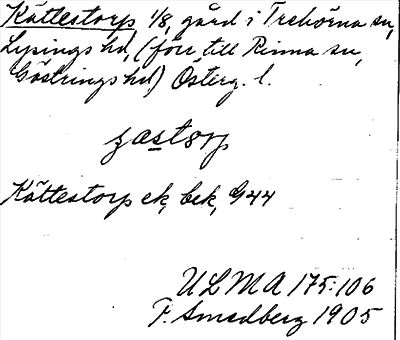 Kättestorp 1/8, gård i Trehörna sn,
Lysings hd, (förr till Rinna sn,
Göstrings hd) Österg. l.
zastorp
Kättestorp ek, bek, G44
ULMA 175:106
F. Smedberg 1905